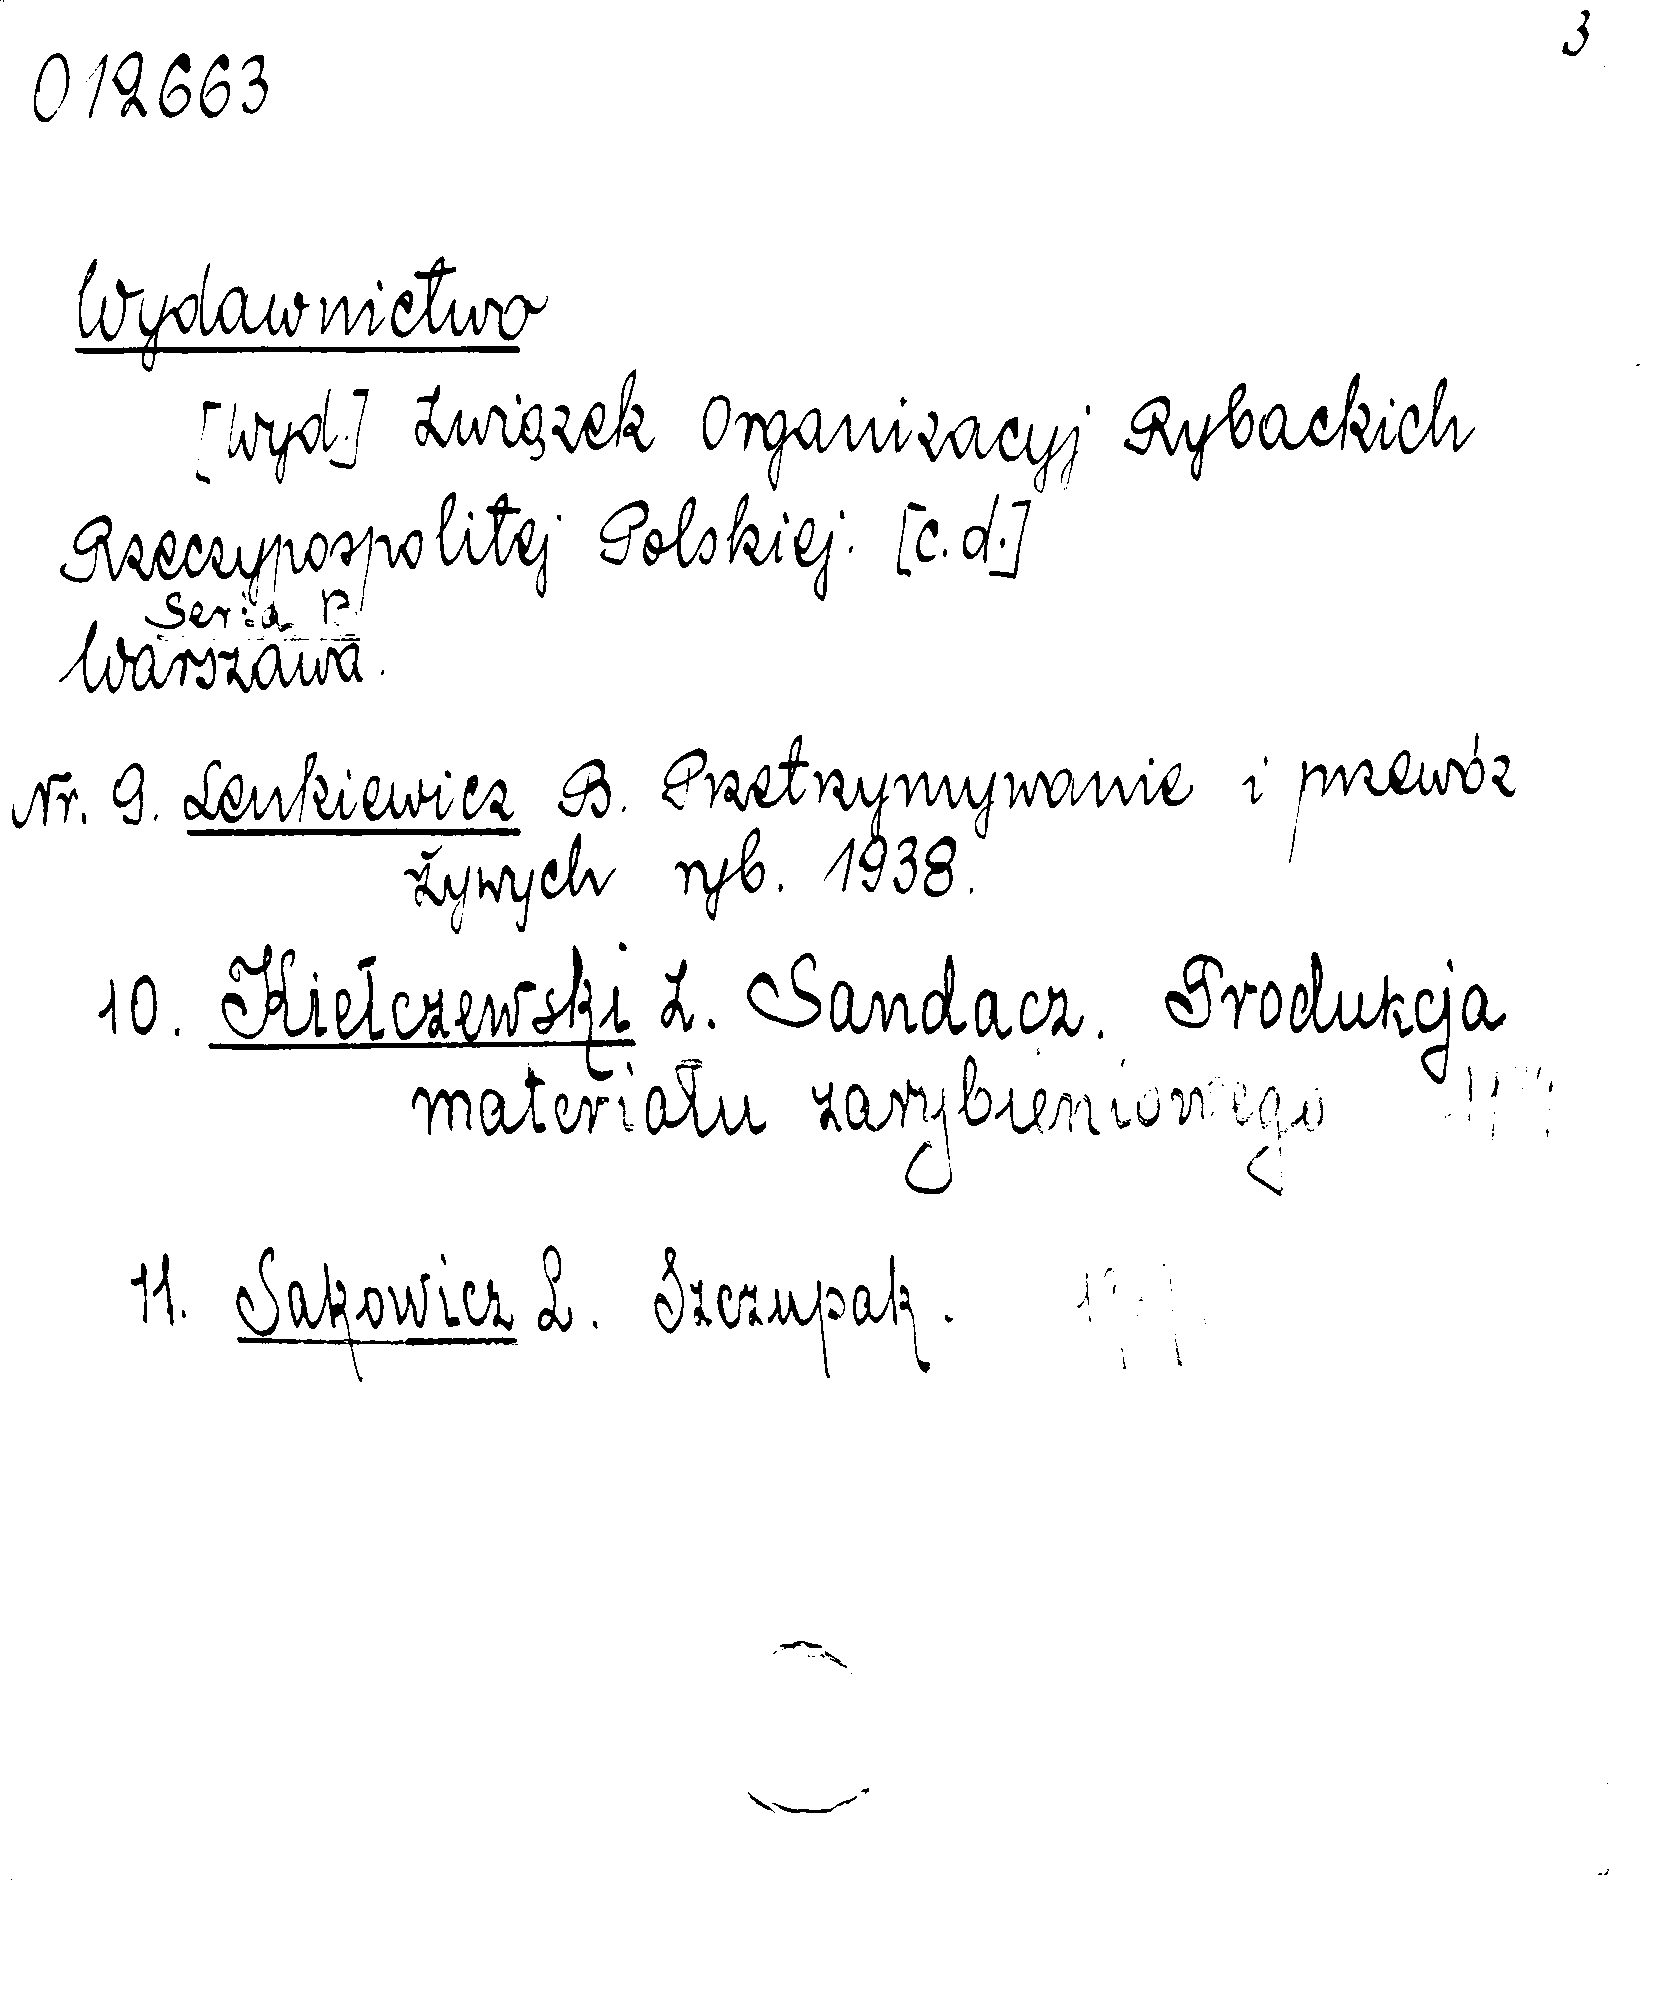 3
012663
Wydawnictwo
[Wyd.] Związek Organizacyj Rybackich
Rzeczypospolitej Polskiej. [c.d.]
Seria B
Warszawa.
Nr. 9. Lenkiewicz B. Przetrzymywanie i przewóz
żywych ryb. 1938.
10. Kiełczewski Z. Sandacz. Produkcja
materiału zarybieniowego
11. Sakowicz L. Szczupak.